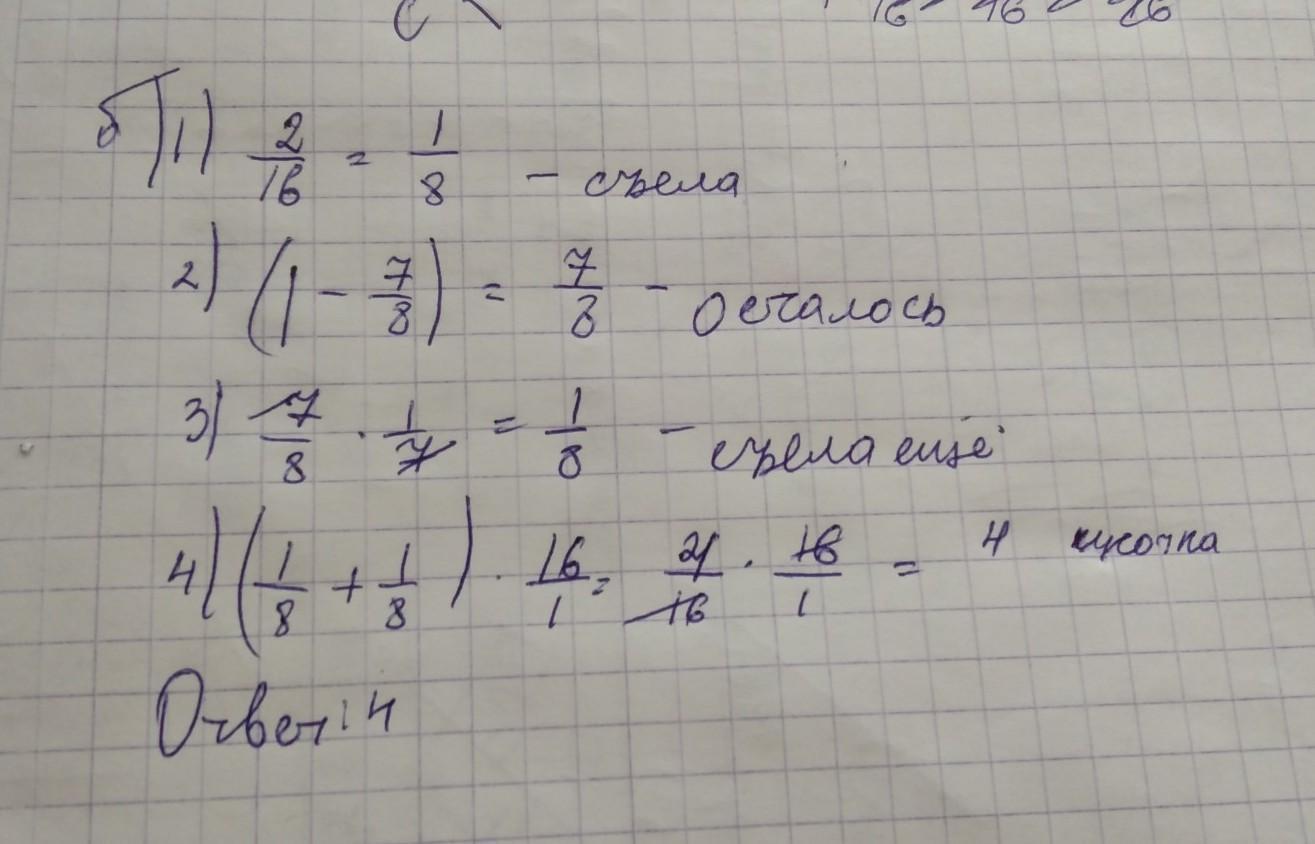 16 16 16
б) 1) 2/16 = 1/8 - съела
2) (1 - 7/8) = 7/8 - осталось
3) 7/8 · 1/7 = 1/8 - съела ещё
4) (1/8 + 1/8) · 16/1 = 4/16 · 16/1 = 4 кусочка
Ответ: 4